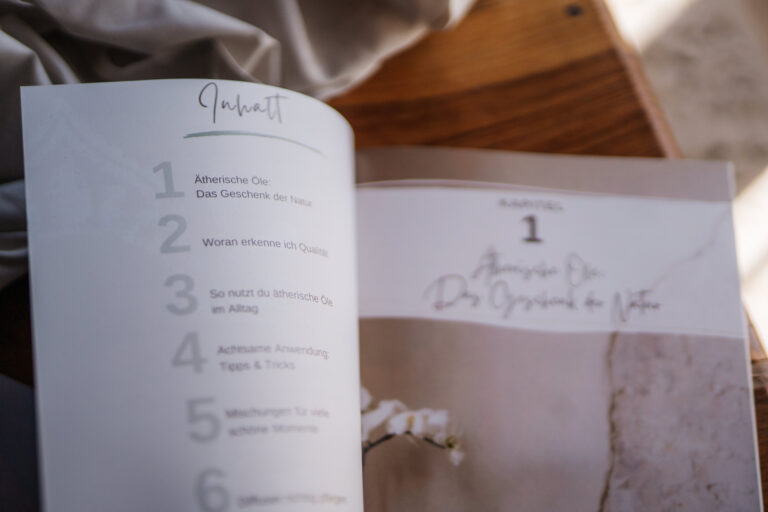 Inhalt
1
Ätherische Öle:
Das Geschenk der Natur
2
Woran erkenne ich Qualität
3
So nutzt du ätherische Öle
im Alltag
4
Achtsame Anwendung:
Tipps & Tricks
5
Mischungen für viele
schöne Momente
6
Diffuser richtig pflegen
KAPITEL
1
Ätherische Öle:
Das Geschenk der Natur